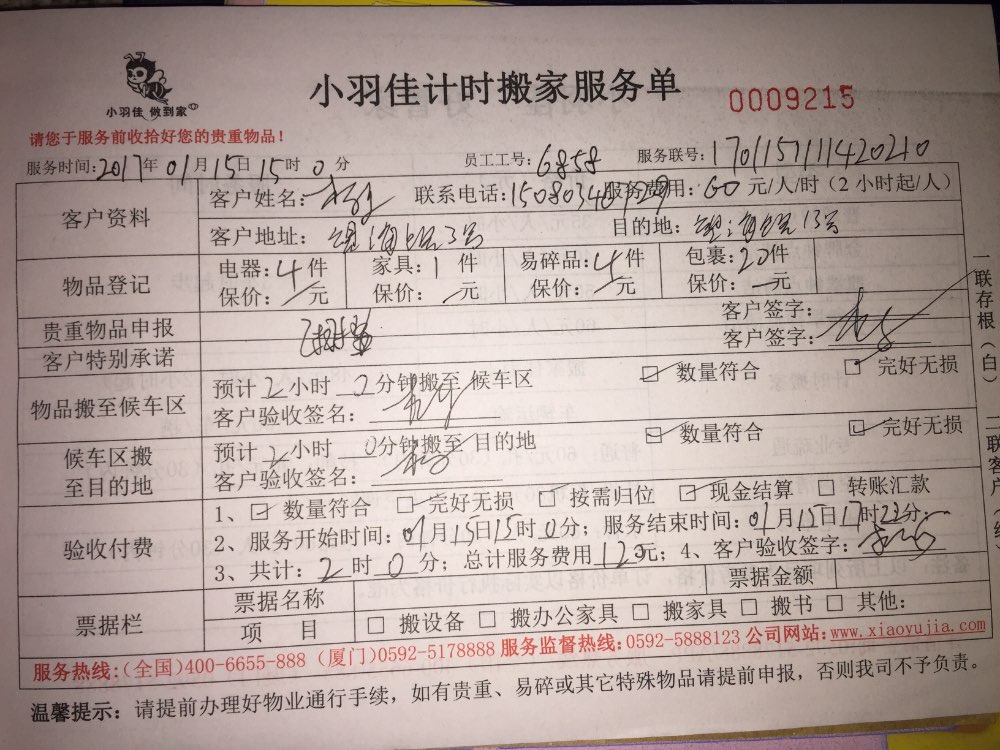 小羽佳 做到家
小羽佳计时搬家服务单
0009215
请您于服务前收拾好您的贵重物品！
服务时间:2017年01月15日15时0分 员工工号:6858 服务联号:1701157111420210
客户资料 客户姓名: 联系电话: 服务费用:60元/人/时（2小时起/人）
客户地址: 3号 目的地: 13号
物品登记 电器:4件 家具:1件 易碎品:4件 包裹:20件
保价:/元 保价:/元 保价:/元 保价:/元
贵重物品申报 客户签字:
客户特别承诺 客户签字:
物品搬至候车区 预计2小时2分钟搬至候车区 ☑数量符合 ☑完好无损
客户验收签名:
候车区搬至目的地 预计2小时0分钟搬至目的地 ☑数量符合 ☑完好无损
客户验收签名:
验收付费 1、☑数量符合 ☑完好无损 ☑按需归位 ☑现金结算 □转账汇款
2、服务开始时间:01月15日15时0分; 服务结束时间:01月15日17时22分;
3、共计:2时0分; 总计服务费用120元; 4、客户验收签字:
票据栏 票据名称 票据金额
项目 □搬设备 □搬办公家具 □搬家具 □搬书 □其他:
服务热线:(全国)400-6655-888 (厦门)0592-5178888 服务监督热线:0592-5888123 公司网站:www.xiaoyujia.com
温馨提示: 请提前办理好物业通行手续，如有贵重、易碎或其它特殊物品请提前申报，否则我司不予负责。
一联存根（白） 二联客户